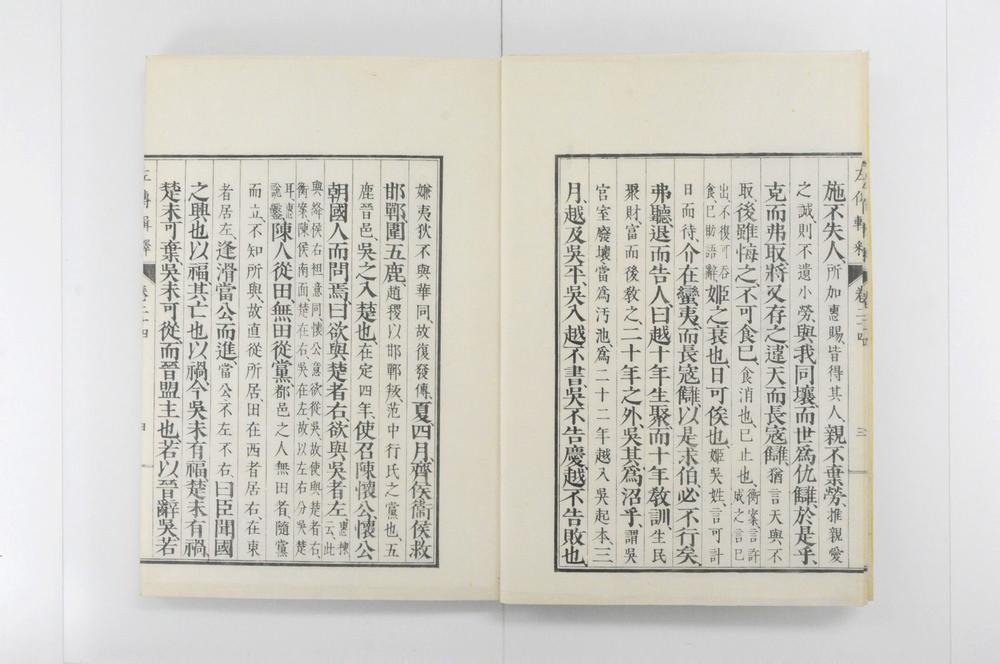 左傳輯釋 卷二十四 三
施不失人、所加惠賜、皆得其人、親不棄勞、推親愛
之誠、則不遺小勞、與我同壤、而世爲仇讎、於是乎、
克而弗取、將又存之、違天而長寇讎、猶言天與不
取、後雖悔之、不可食已、食消也、已止也、衡案、言許成之言已
出、不復可吞食、已助語辭、姬之衰也、日可俟也、姬吳姓、言可計
日而待、介在蠻夷、而長寇讎、以是求伯、必不行矣、
弗聽、退而告人曰、越十年生聚、而十年敎訓、生民
聚財、富而後敎之、二十年之外、吳其爲沼乎、謂吳
宮室廢壞、當爲汚池、爲二十二年越入吳起本、三
月、越及吳平、吳入越不書、吳不告慶、越不告敗也、
嫌夷狄不與華同、故復發傳、夏、四月、齊侯衞侯救
邯鄲、圍五鹿、趙稷以邯鄲叛、范中行氏之黨也、五
鹿晉邑、吳之入楚也、在定四年、使召陳懷公、懷公
朝國人而問焉、曰、欲與楚者右、欲與吳者左、惠棟云、此
與絳侯右袒意同、懷公意欲從吳、故使與楚者右、
衡案陳侯南面、楚在右、吳在左、故以左右分吳楚
耳、惠說鑿、陳人從田、無田從黨、都邑之人無田者、隨黨
而立、不知所與、故直從所居、田在西者居右、在東
者居左、逢滑當公而進、當公不左不右、曰、臣聞、國
之興也以福、其亡也以禍、今吳未有福、楚未有禍、
楚未可棄、吳未可從、而晉盟主也、若以晉辭吳若
左傳輯釋 卷二十四